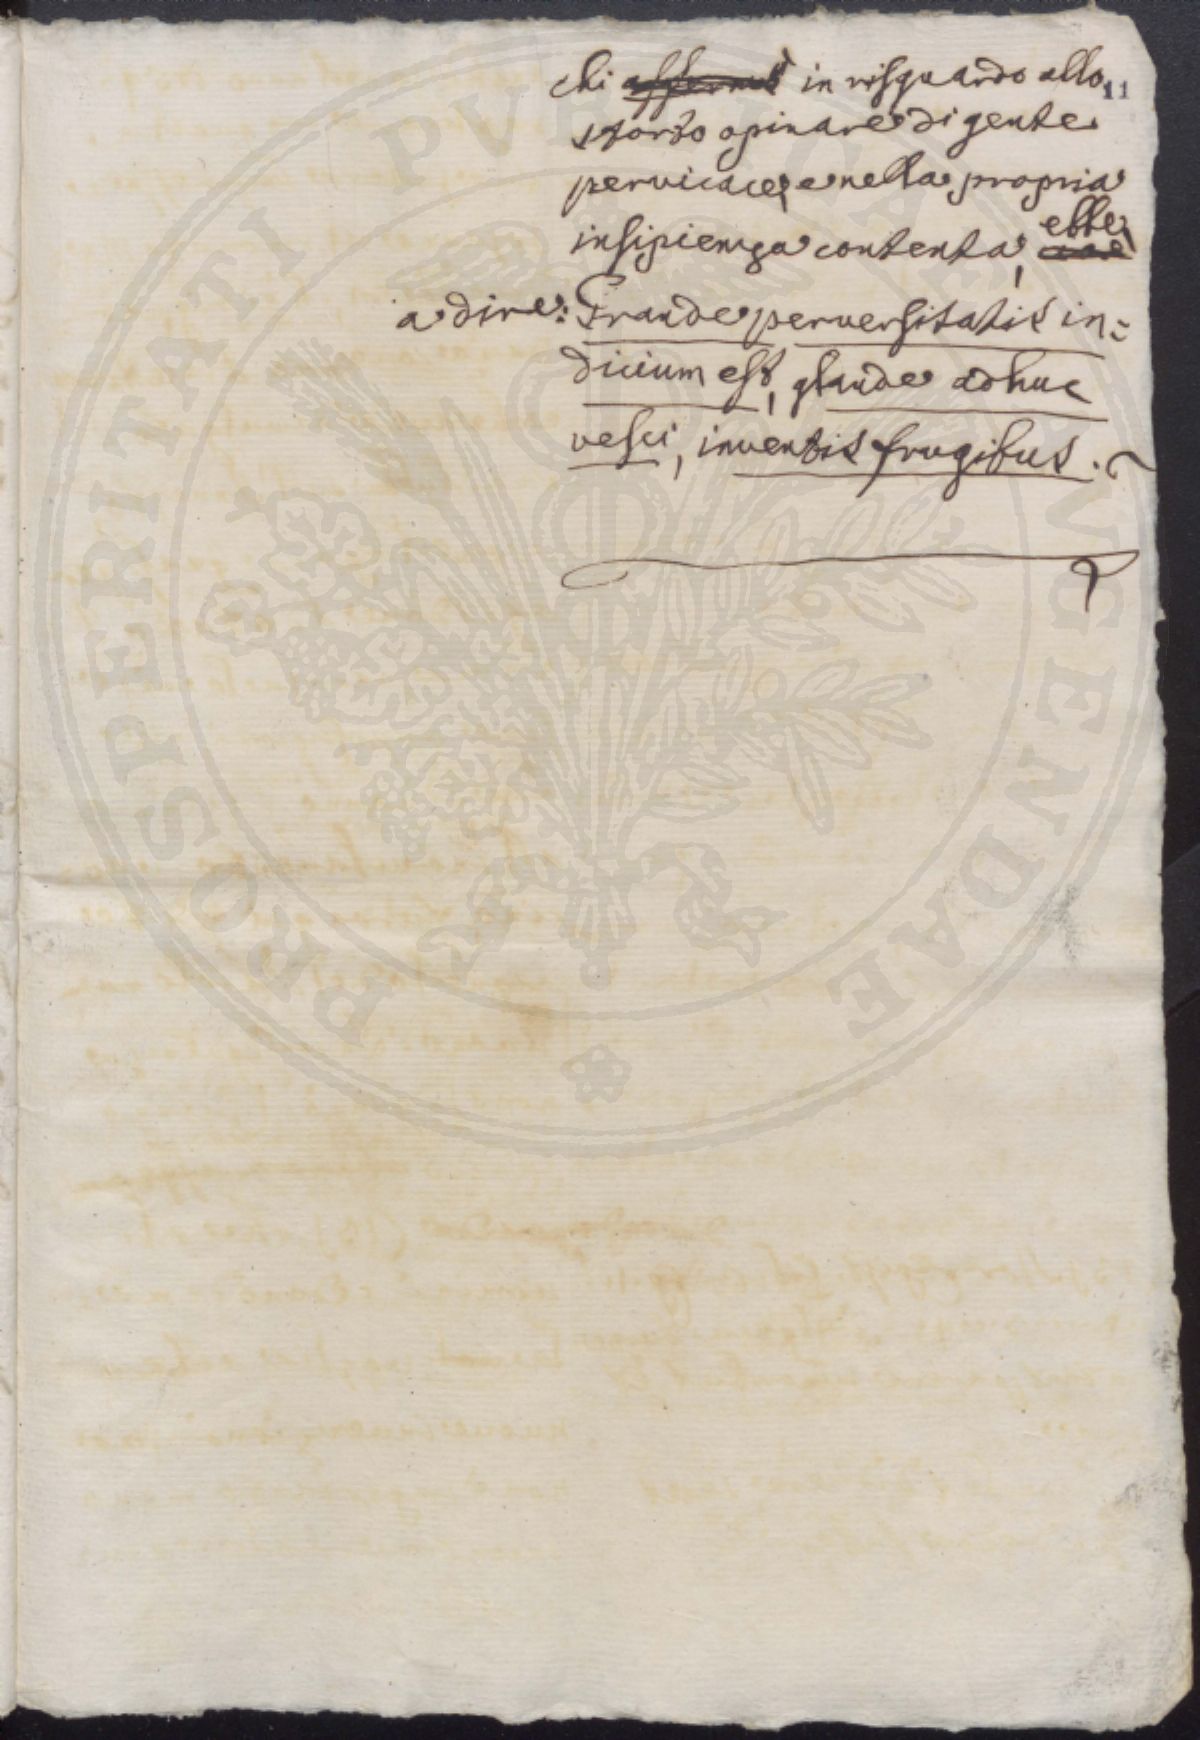 chi in risguardo allo 11
storto opinare di gente
pervicace, e nella propria
insipienza contenta, ebbe
a dire: Grande perversitatis in=
dicium est, glande adhuc
vesci, inventis frugibus.
PROSPERITATI PUBLICAE AUGENDAE